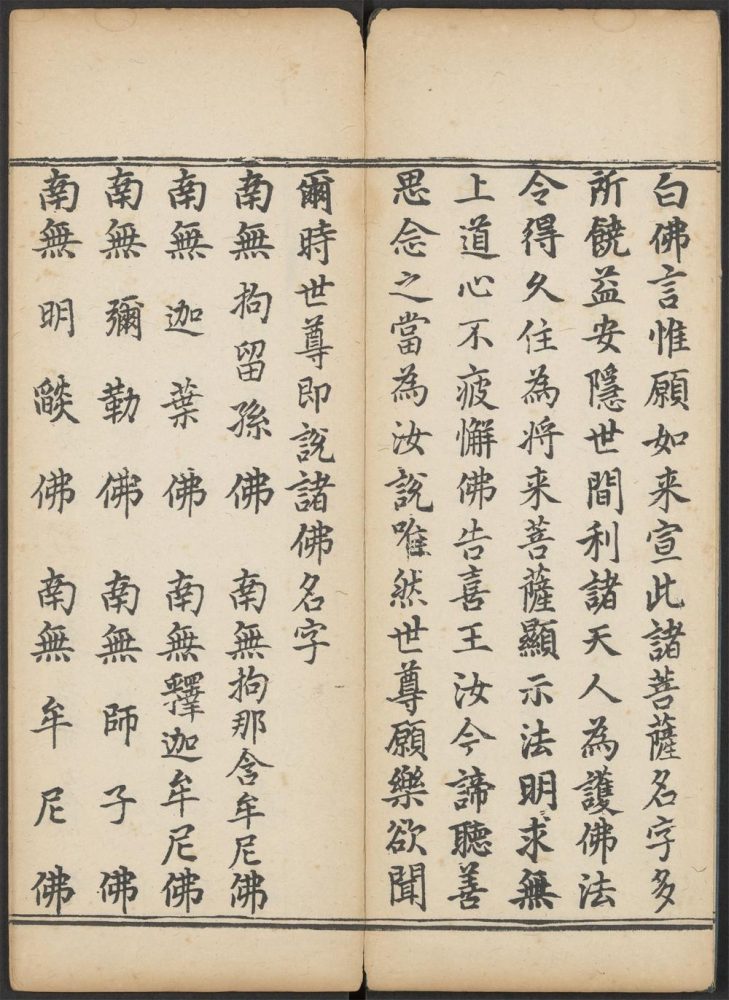 白佛言惟願如来宣此諸菩薩名字多
所饒益安隱世間利諸天人為護佛法
令得久住為将来菩薩顯示法明求無
上道心不疲懈佛告喜王汝今諦聽善
思念之當為汝說唯然世尊願樂欲聞
爾時世尊即說諸佛名字
南無拘留孫佛　南無拘那含牟尼佛
南無迦葉佛　南無釋迦牟尼佛
南無彌勒佛　南無師子佛
南無明𦦨佛　南無牟尼佛